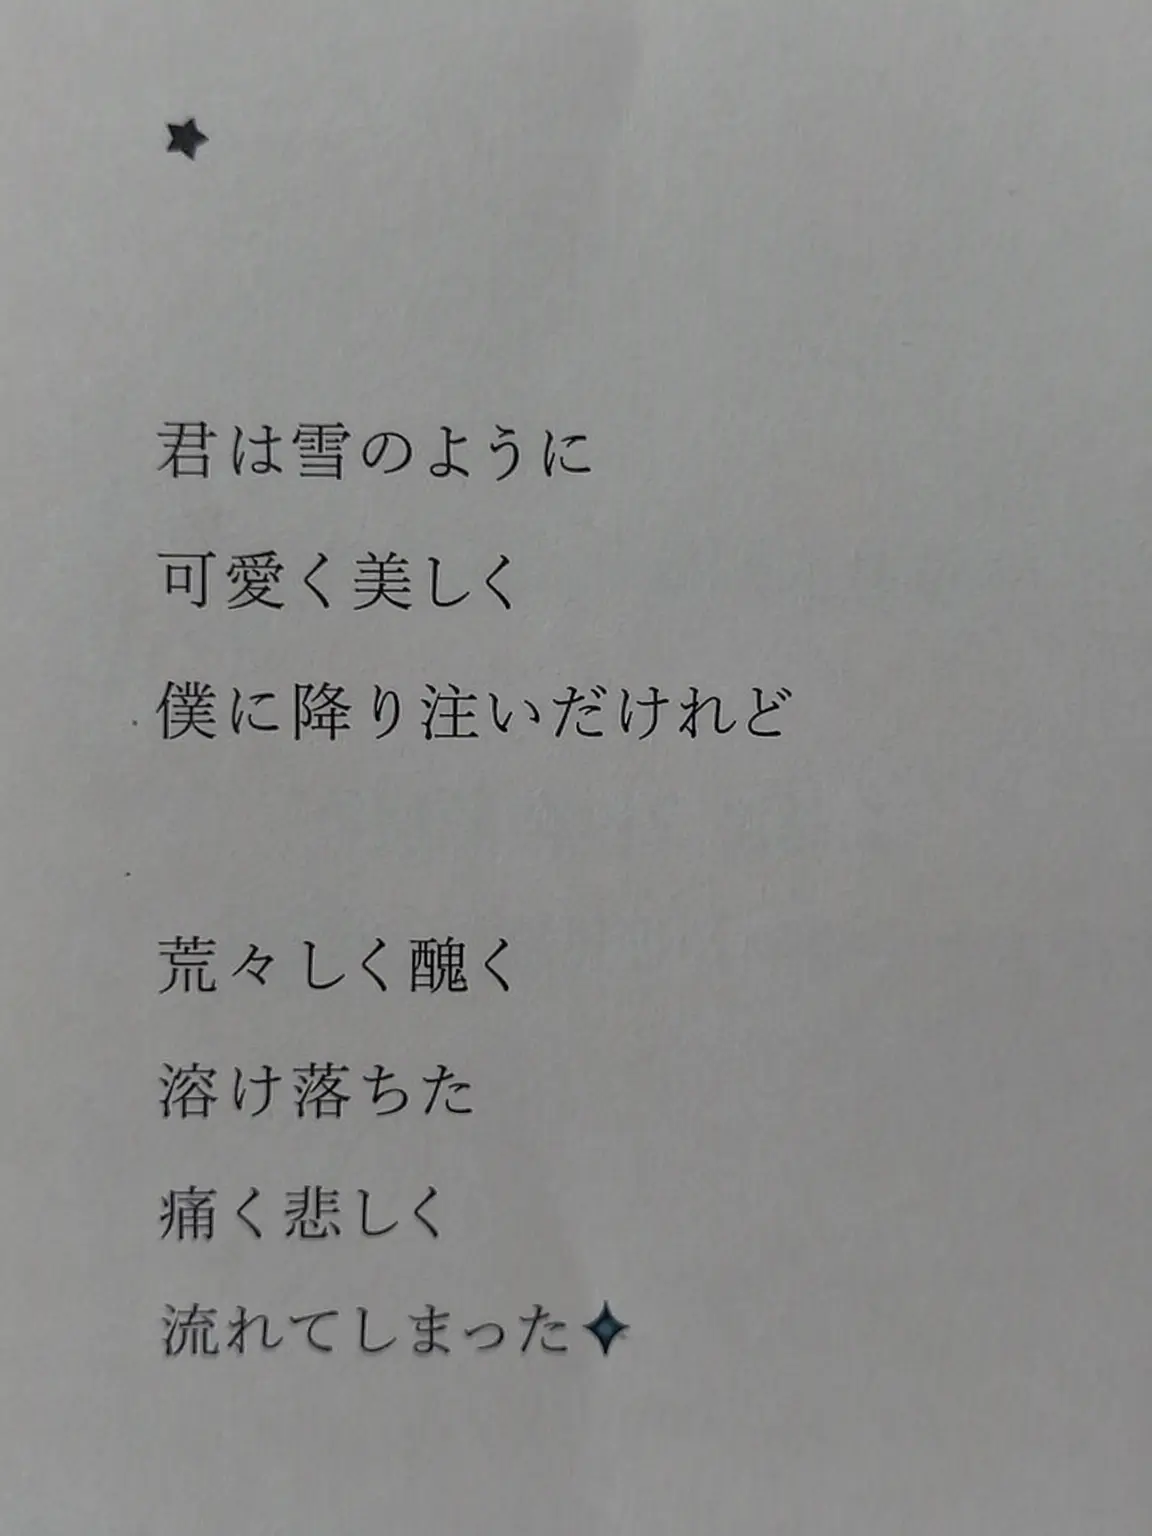 ★
君は雪のように
可愛く美しく
僕に降り注いだけれど
荒々しく醜く
溶け落ちた
痛く悲しく
流れてしまった✦